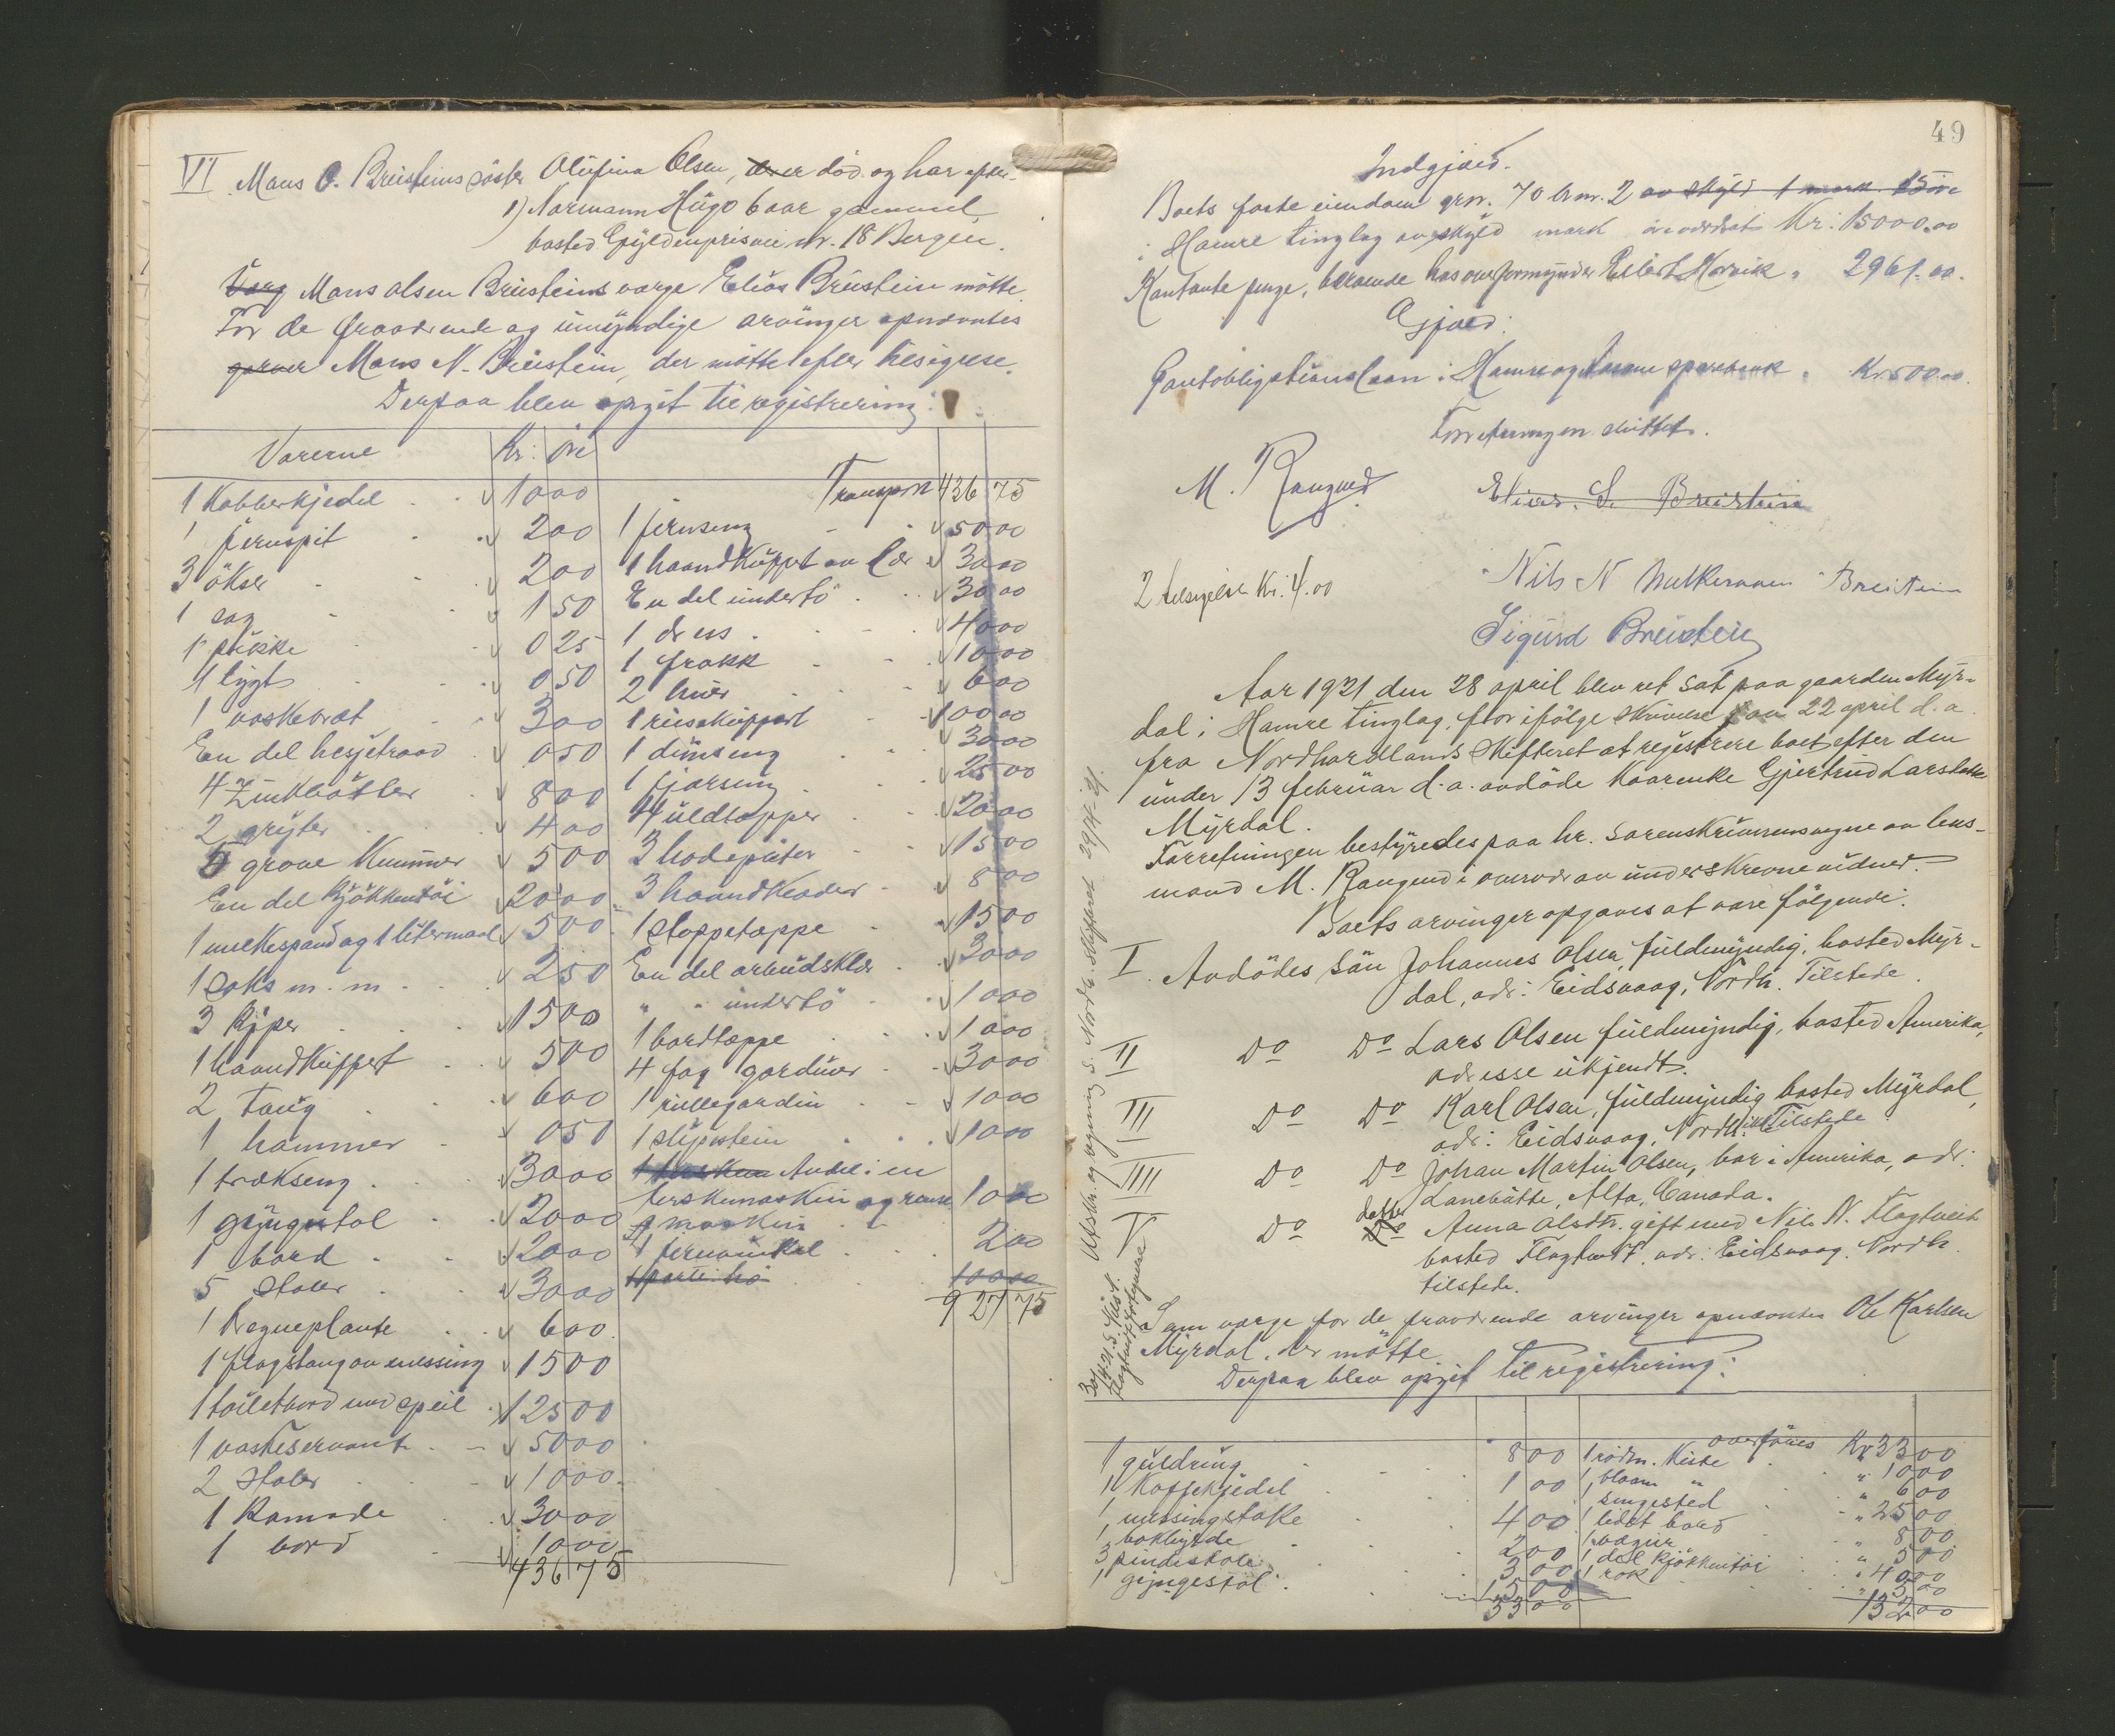 VI Mons O. Breisteins søster Olufina Olsen, er død og har efter-
1) Normann Hugo 6 aar gammel,
bosted Gyldenprisvei nr. 18 Bergen.
Mons Olsen Breisteins verge Elias Breistein møtte.
For de fraværende og umyndige arvinger opnævntes
Mons N. Breistein, der møtte efter tilsigelse.
Derpaa blev opgit til registrering:
Varerne Kr: øre
1 Kobberkjedel 10 00
1 jernspit 2 00
3 økser 2 00
1 sag 1 50
1 0 25
1 lygt 0 50
1 vaskebræt 3 00
En del hesjetraad 0 50
4 Zinkbøtter 8 00
2 gryter 4 00
5 grove Kummer 5 00
En del kjøkkentøi 20 00
1 melkespand og 1 litermaal 5 00
1 saks m. m. 2 50
3 kiper 15 00
1 haandkuffert 5 00
2 Taug 6 00
1 hammer 0 50
1 trækseng 30 00
1 gyngestol 20 00
1 bord 20 00
5 stoler 30 00
1 Dragneplante 6 00
1 flagstang av messing 15 00
1 toiletbord med speil 125 00
1 vaskeservant 50 00
2 stoler 10 00
1 Komode 30 00
1 bord 10 00
436 75
Transport 436 75
1 jernseng 50 00
1 haandkuffert av lær 30 00
En del undertø 30 00
1 dress 40 00
1 frakk 10 00
2 huer 6 00
1 reisekuffert 100 00
1 dunseng 30 00
1 fjærseng 25 00
4 uldtæpper 20 00
3 hodeputer 15 00
3 haandklæder 8 00
1 stoppetæppe 15 00
En del arbeidsklær 30 00
" " undertø 10 00
1 bordtæppe 10 00
4 fag gardiner 30 00
1 rullegardin 10 00
1 slipestein 10 00
Andel i en
terskemaskin og rense
maskin 10 00
1 jernvinkel 2 00
1 parti hø 100 00
927 75
49
Indgjæld.
Boets faste eiendom grn. 70 brn. 2 av skyld 1 mark 15 øre
i Hamre tinglag av skyld mark øre værdsat Kr: 15000.00
Kontante penge, beroende hos overformynder Eilert Horvik " 2961.00.
Gjæld:
Pantobligationslaan i Hamre og Aasane sparebank " Kr 500.00.
Forretningen sluttet.
M. Raugned
Elias. S. Breistein
2 tilsigelser Kr: 4.00
Nils N Breistein
Sigurd Breistein
Aar 1921 den 28 april blev ret sat paa gaarden Myr-
dal i Hamre tinglag, for ifølge skrivelse fra 22 april d. a
fra Nordhordlands Skifteret at registrere boet efter den
under 13 februar d. a. avdøde Kaarenke Gjertrud Larsdatter
Myrdal.
Forretningen bestyredes paa hr. sorenskriverens vegne av lens-
mand M. Raugned i overvær av underskrevne vidner.
Boets arvinger opgaves at være følgende:
I. Avdødes søn Johannes Olsen, fuldmyndig, bosted Myr-
dal, adr: Eidsvaag, Nordh. Tilstede.
II Do Do Lars Olsen fuldmyndig, bosted Amerika,
adresse ukjendt.
III Do Do Karl Olsen, fuldmyndig bosted Myrdal,
adr: Eidsvaag, Nordh. Tilstede
IIII Do Do Johan Martin Olsen, bor i Amerika, adr:
Alta, Canada.
V Do datter Anna Olsdtr. gift med Nils N. Flagtveit
bosted Flagtveit, adr: Eidsvaag, Nordh.
tilstede.
Som verge for de fraværende arvinger opnævntes Ole Karlsen
Myrdal, der møtte
Derpaa blev opgit til registrering:
1 guldring 8 00
1 Kaffekjedel 1 00
1 messingstake 4 00
1 bokhylde 2 00
3 pindestoler 3 00
1 gyngestol 15 00
33 00
overføres Kr 33 00
1 rødm. Kiste " 10 00
1 blaam " " 6 00
1 sengested " 25 00
1 bord " 8 00
1 vægur " 5 00
1 del kjøkkentøi " 40 00
1 rok " 5 00
132 00